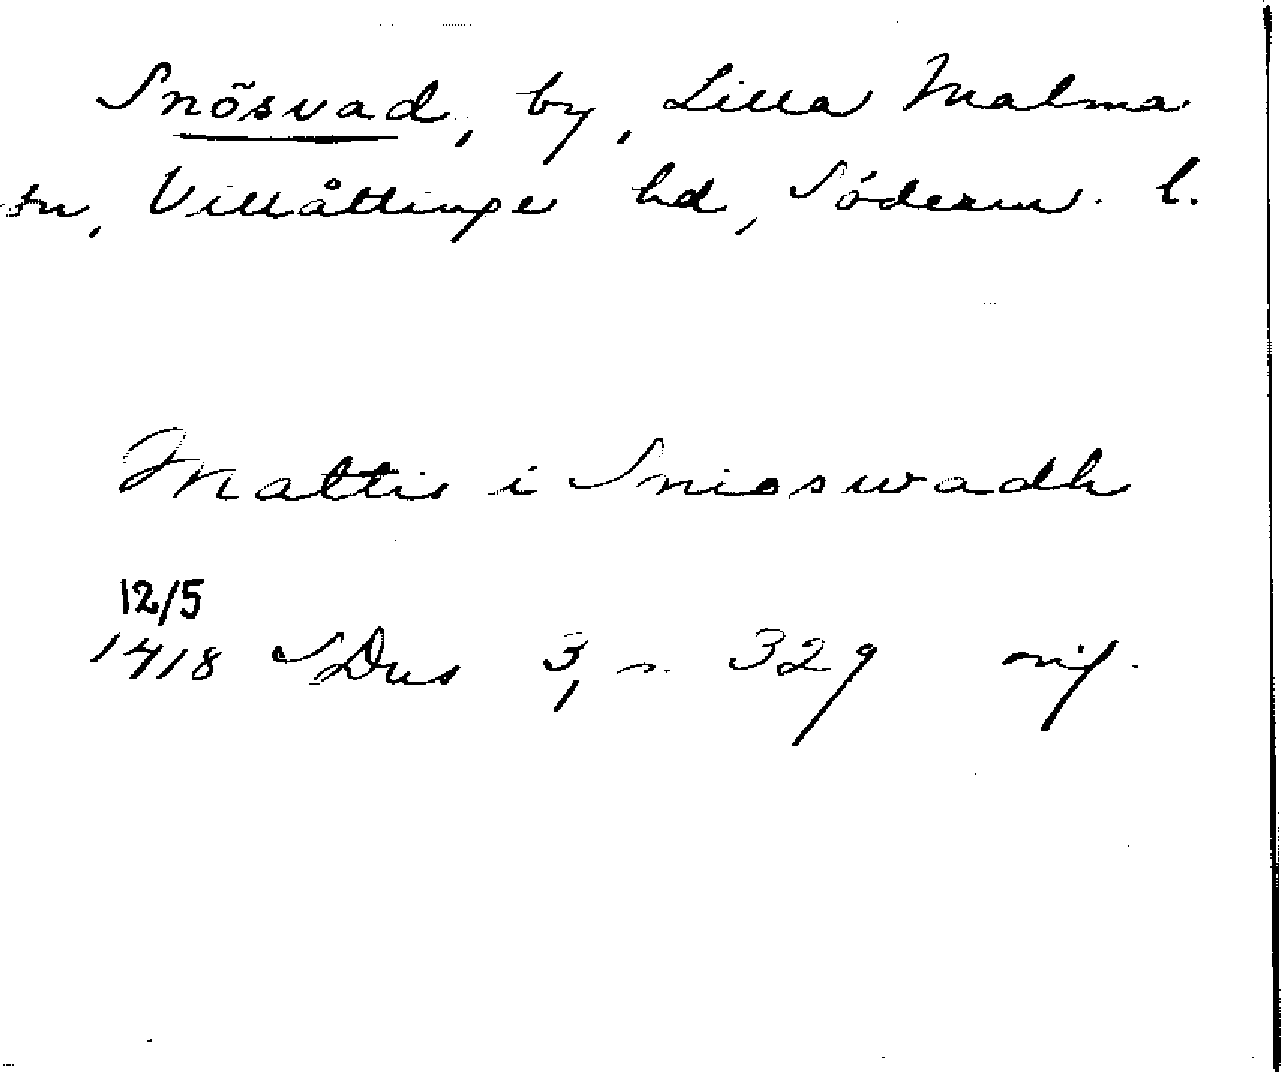 Snösvad, by, Lilla Malma
sn, Villåttinge hd, Söderm. l.
Mattis i Snioswadh
12/5
1418 SDns 3, s. 329 orig.